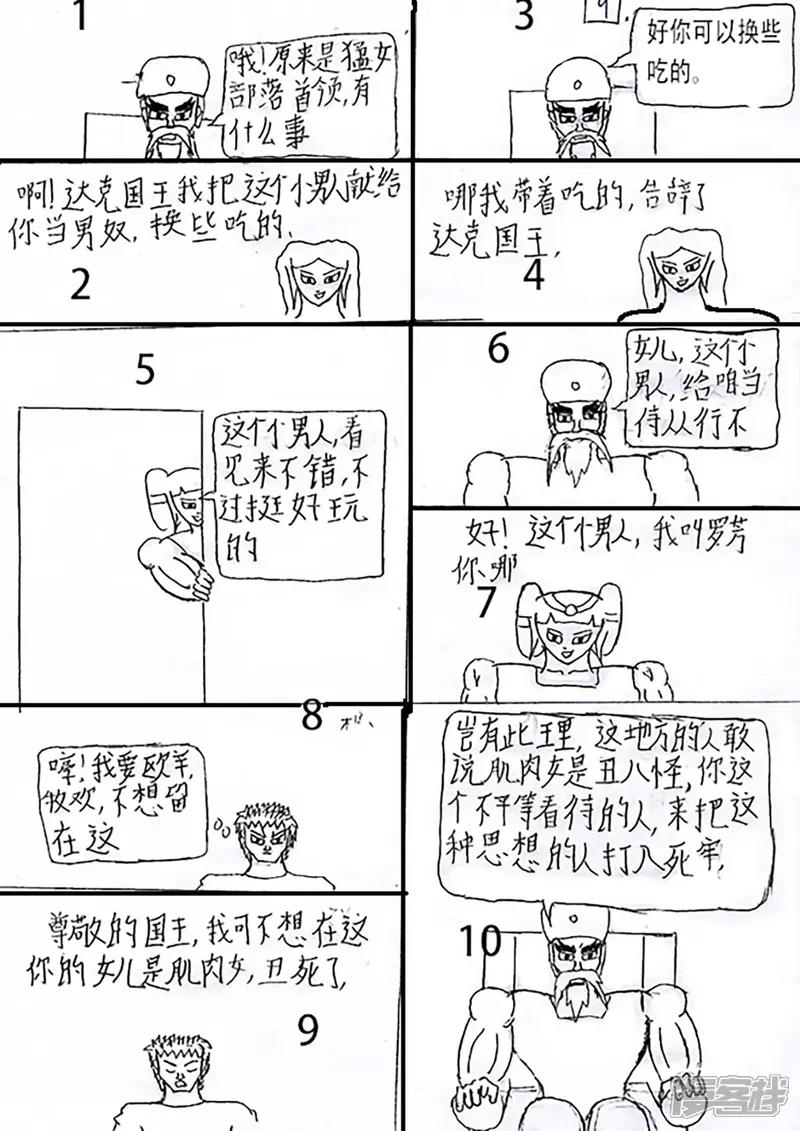 1
哦！原来是猛女
部落首领，有
什么事
啊！达克国王我把这个男人献给
你当男奴，换些吃的、
2
3
9.
好你可以换些
吃的。
哪我带着吃的，告辞了
达克国王，
4
5
这个男人，看
见来不错，不
过挺好玩
的
6
女儿，这个
男人，给咱当
侍从行不
好！这个男人，我叫罗芳
你、哪
7
8
我要欧羊，
牧欢，不想留
在这
尊敬的国王，我可不想在这
你的女儿是肌肉女，丑死了，
9
岂有此王里，这地方的人敢
说肌肉女是丑八怪，你这
个不平等看待的人，来把这
种思想的人打入死牢，
10
漫客栈